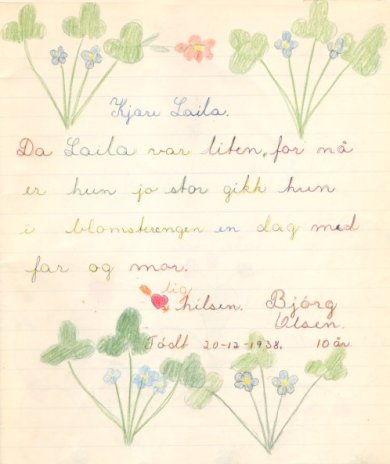 Kjære Laila.
Da Laila var liten, for nå
er hun jo stor gikk hun
i blomsterengen en dag med
far og mor.
hilsen. Bjørg
Olsen.
Født 20-12-1938. 10 år